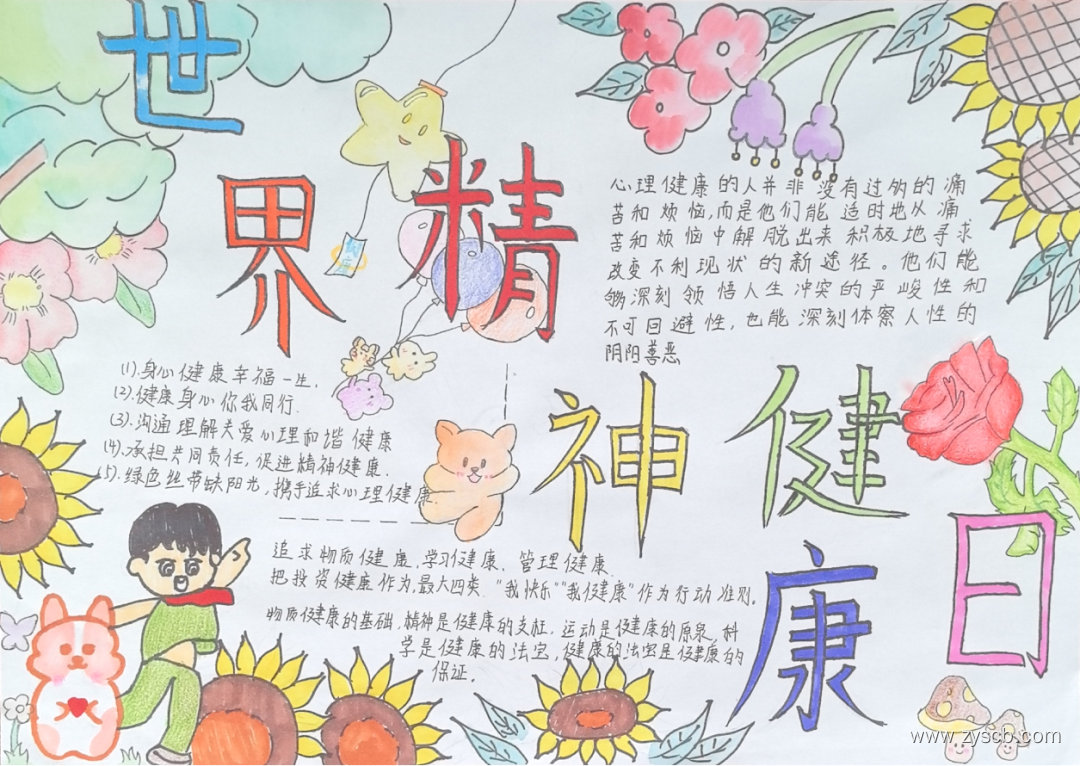 世界精神健康日
心理健康的人并非没有过多的痛
苦和烦恼,而是他们能适时地从痛
苦和烦恼中解脱出来积极地寻求
改变不利现状的新途径。他们能
够深刻领悟人生冲突的严峻性和
不可回避性,也能深刻体察人性的
阴阳善恶
(1).身心健康幸福一生.
(2).健康身心你我同行.
(3).沟通理解关爱心理和谐健康
(4).承担共同责任,促进精神健康.
(5).绿色丝带缺阳光,携手追求心理健康.
追求物质健康,学习健康、管理健康、
把投资健康作为最大四类."我快乐""我健康"作为行动准则.
物质健康的基础,精神是健康的支柱,运动是健康的原泉,科
学是健康的法宝,健康的法宝是健康的
保证。
www.zyscb.com